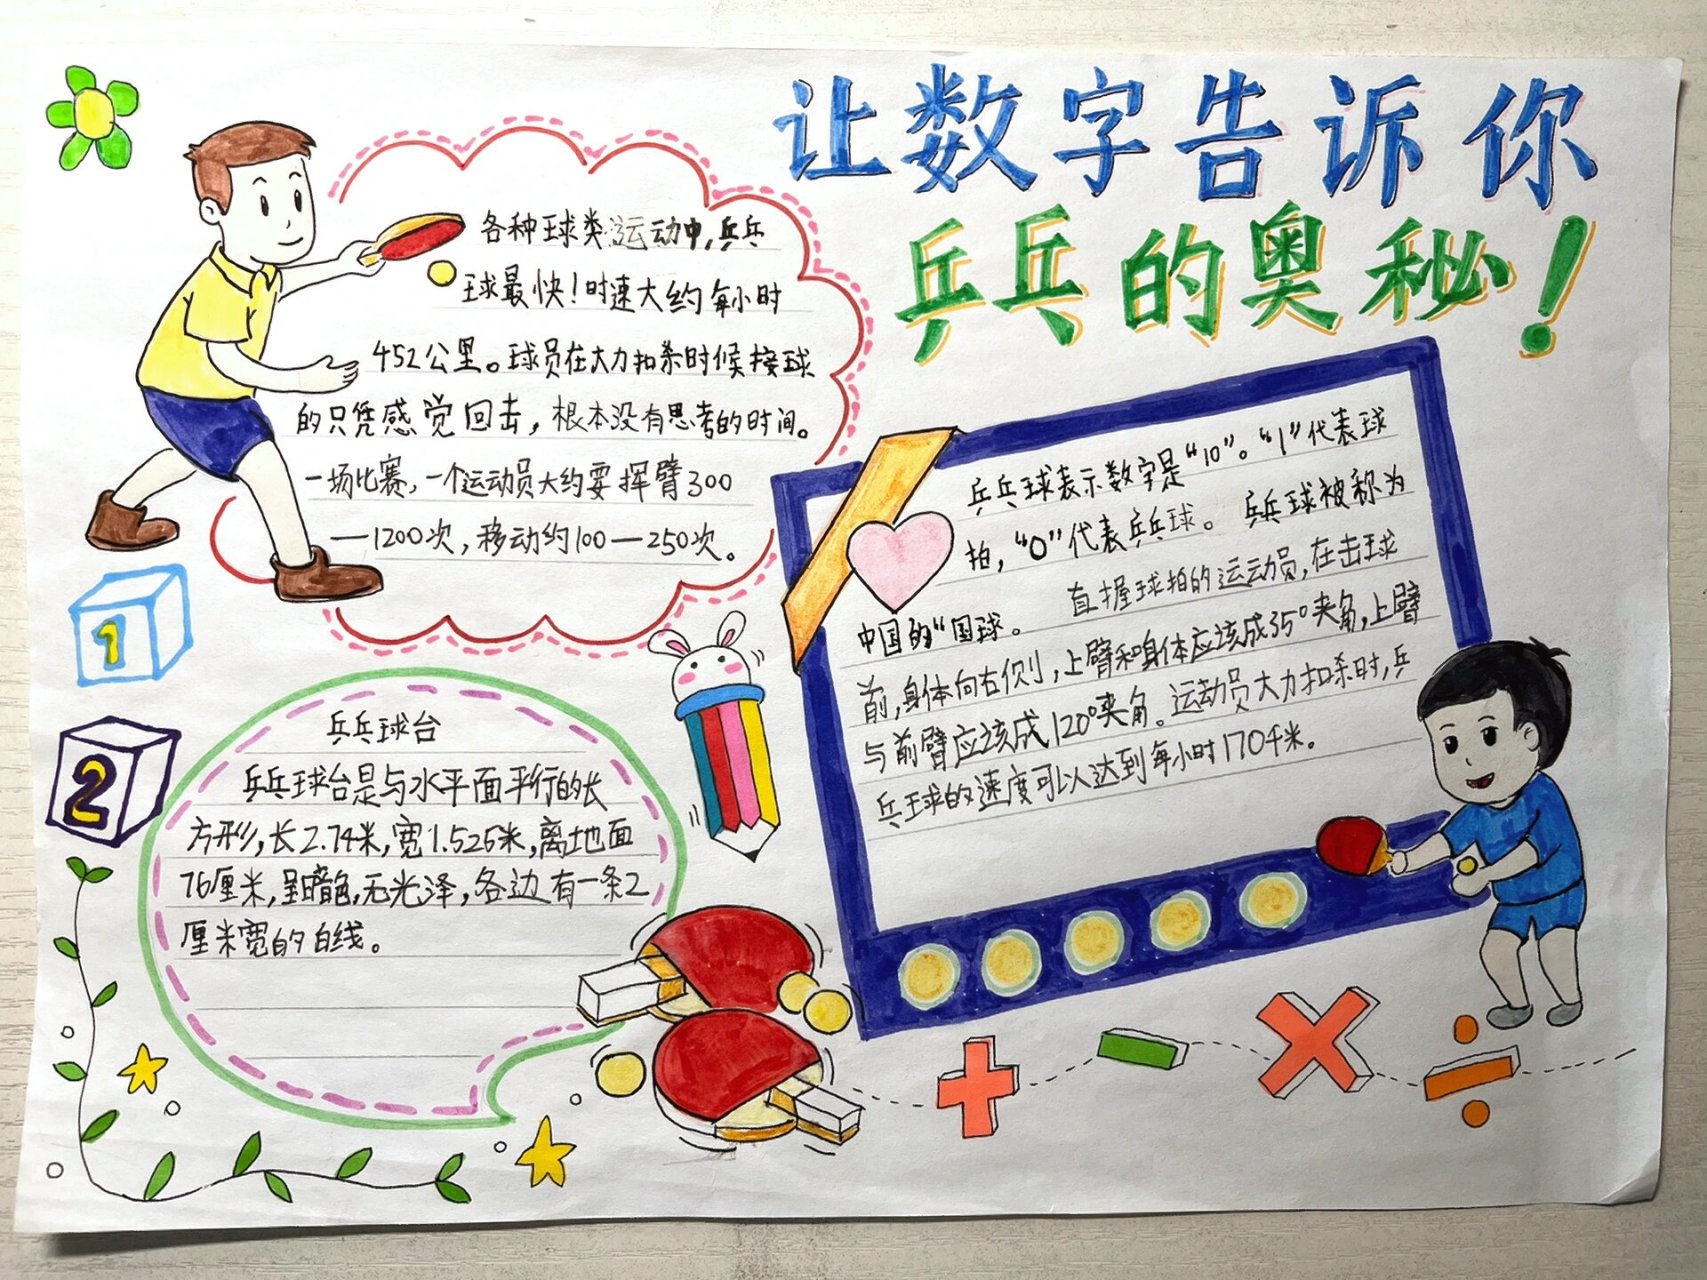 让数字告诉你
乒乓的奥秘!
各种球类运动中,乒乓
球最快!时速大约每小时
452公里。球员在大力扣杀时候接球
的只凭感觉回击,根本没有思考的时间。
一场比赛,一个运动员大约要挥臂300
—1200次,移动约100—250次。
乒乓球表示数字是“10”。“1”代表球
拍,“0”代表乒乓球。 乒乓球被称为
中国的“国球。 直握球拍的运动员,在击球
前,身体向右侧,上臂和身体应该成35°夹角,上臂
与前臂应该成120°夹角。运动员大力扣杀时,乒
乓球的速度可以达到每小时170千米。
1
2
乒乓球台
乒乓球台是与水平面平行的长
方形,长2.74米,宽1.525米,离地面
76厘米,呈暗色,无光泽,各边有一条2
厘米宽的白线。
+ − × ÷